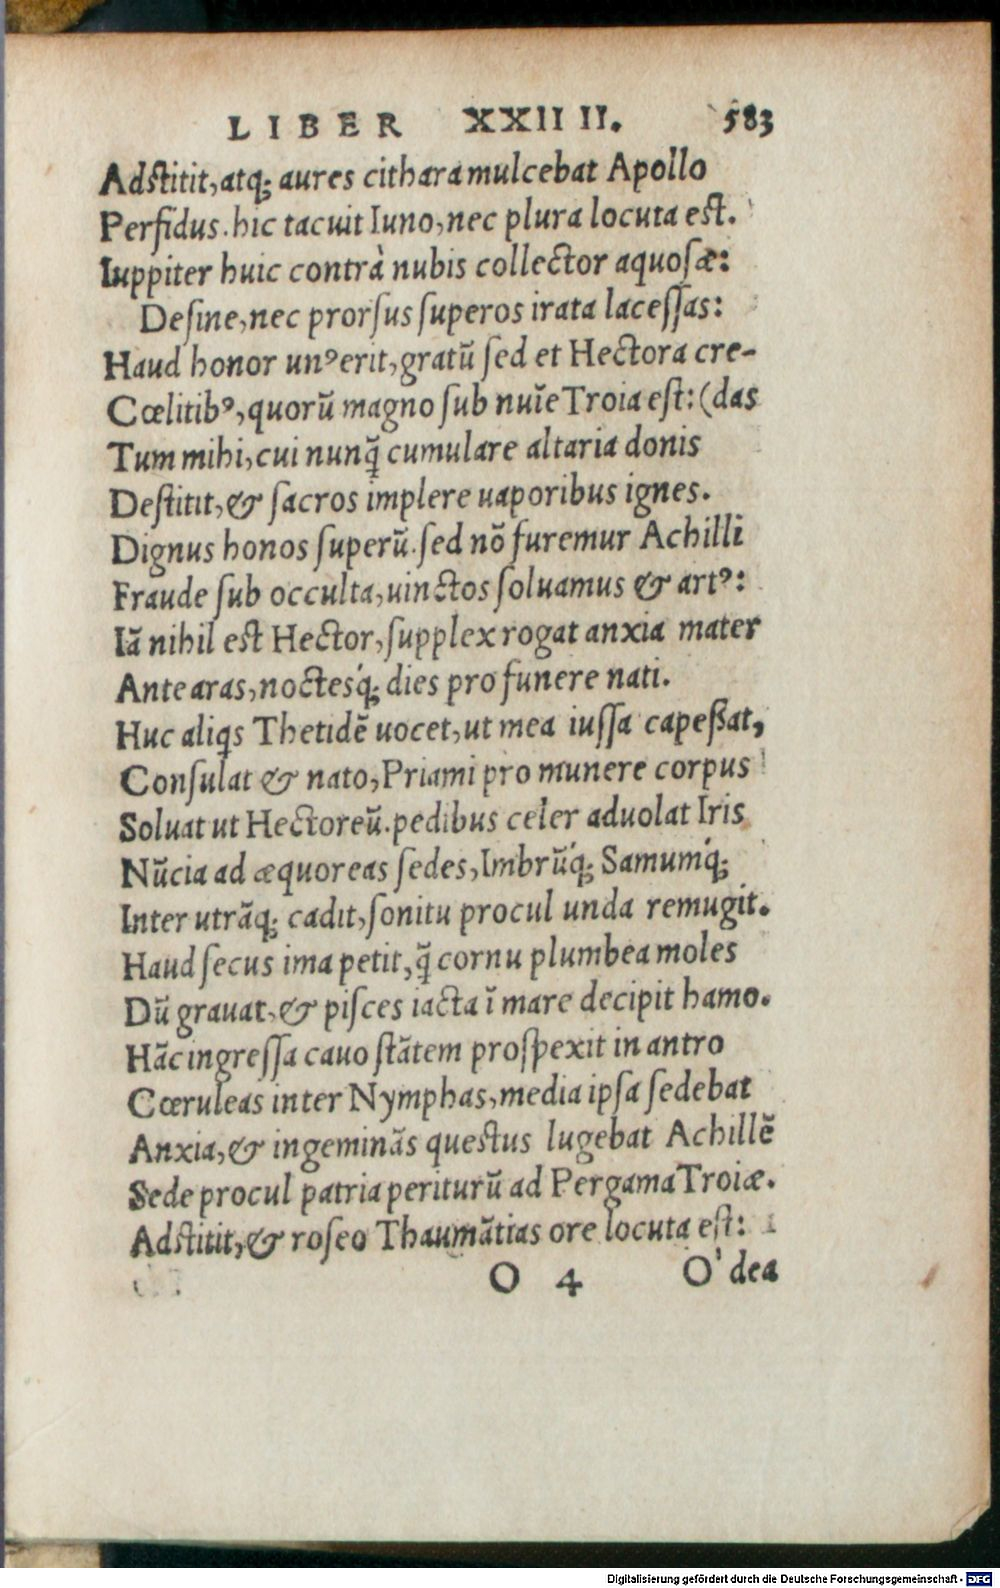 LIBER XXIIII. 583
Adstitit, atq́; aures cithara mulcebat Apollo
Perfidus. hic tacuit Iuno, nec plura locuta est.
Iuppiter huic contrà nubis collector aquosæ:
Desine, nec prorsus superos irata lacessas:
Haud honor unꝰ erit, gratū sed et Hectora cre-
Cœlitibꝰ, quorū magno sub nuīe Troia est: (das
Tum mihi, cui nunq̄ cumulare altaria donis
Destitit, & sacros implere uaporibus ignes.
Dignus honos superū. sed nō furemur Achilli
Fraude sub occulta, uinctos soluamus & artꝰ:
Iā nihil est Hector, supplex rogat anxia mater
Ante aras, noctesq́; dies pro funere nati.
Huc aliqs Thetidē uocet, ut mea iussa capeßat,
Consulat & nato, Priami pro munere corpus
Soluat ut Hectoreū. pedibus celer aduolat Iris
Nūcia ad æquoreas sedes, Imbrūq́; Samumq́;
Inter utrāq; cadit, sonitu procul unda remugit.
Haud secus ima petit, q̄ cornu plumbea moles
Dū grauat, & pisces iacta ī mare decipit hamo.
Hāc ingressa cauo stātem prospexit in antro
Cœruleas inter Nymphas, media ipsa sedebat
Anxia, & ingeminās questus lugebat Achillē
Sede procul patria periturū ad Pergama Troiæ.
Adstitit, & roseo Thaumātias ore locuta est:
O 4 O' dea
Digitalisierung gefördert durch die Deutsche Forschungsgemeinschaft - DFG